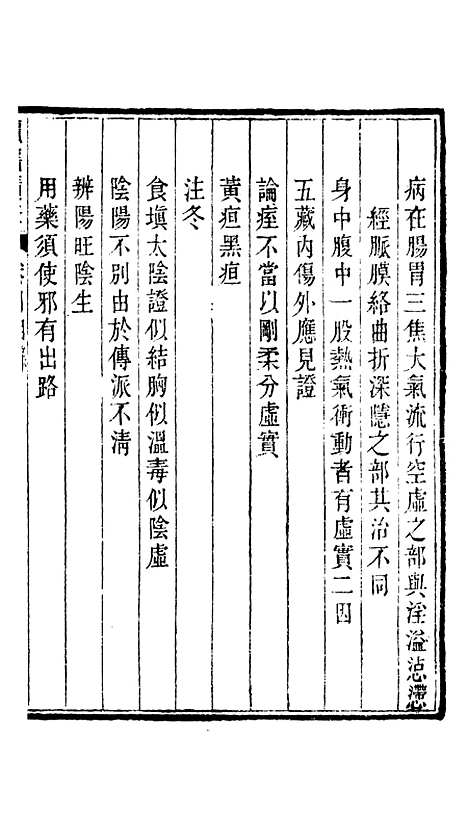 病在腸胃三焦大氣流行空虛之部與淫溢惉懘
經脈膜絡曲折深隱之部其治不同
身中腹中一股熱氣衝動者有虛實二因
五藏內傷外應見證
論痓不當以剛柔分虛實
黃疸黑疸
注冬
食塡太陰證似結胸似溫毒似陰虛
陰陽不別由於傳派不淸
辨陽旺陰生
用藥須使邪有出路